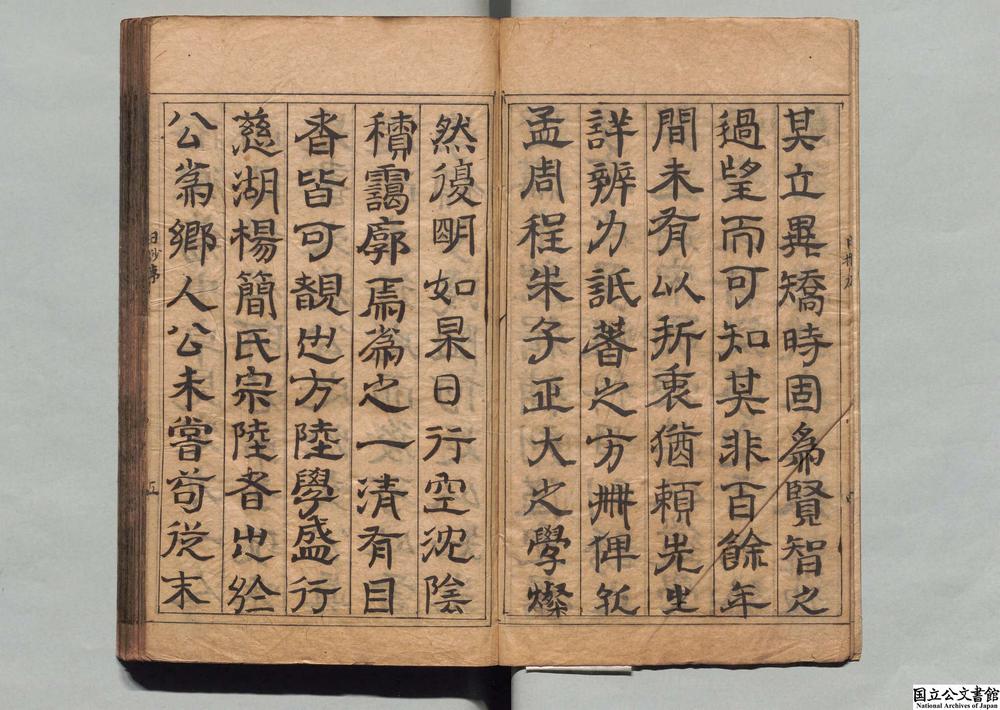 其立異矯時固為賢智之
過望而可知其非百餘年
間未有以折衷猶賴先生
詳辨力詆著之方冊俾孔
孟周程朱子正大之學燦
然復明如杲日行空沈陰
積靄廓焉為之一清有目
者皆可覩也方陸學盛行
慈湖楊簡氏宗陸者也於
公為鄉人公未嘗苟從末
日抄序
五
国立公文書館
National Archives of Japan